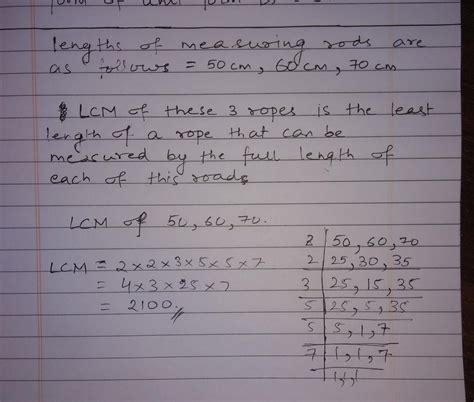 lengths of measuring rods are
as follows = 50 cm, 60 cm, 70 cm
LCM of these 3 ropes is the least
length of a rope that can be
measured by the full length of
each of this roads
LCM of 50, 60, 70.
LCM = 2×2×3×5×5×7
= 4×3×25×7
= 2100.
2 | 50, 60, 70
2 | 25, 30, 35
3 | 25, 15, 35
5 | 25, 5, 35
5 | 5, 1, 7
7 | 1, 1, 7
1, 1, 1